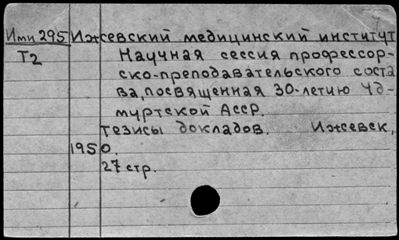 Ими 295 Ижевский медицинский институт
Т2 Научная сессия профессор-
ско-преподавательского соста
ва, посвященная 30-летию Уд-
муртской АССР.
Тезисы докладов. Ижевск,
1950.
27 стр.